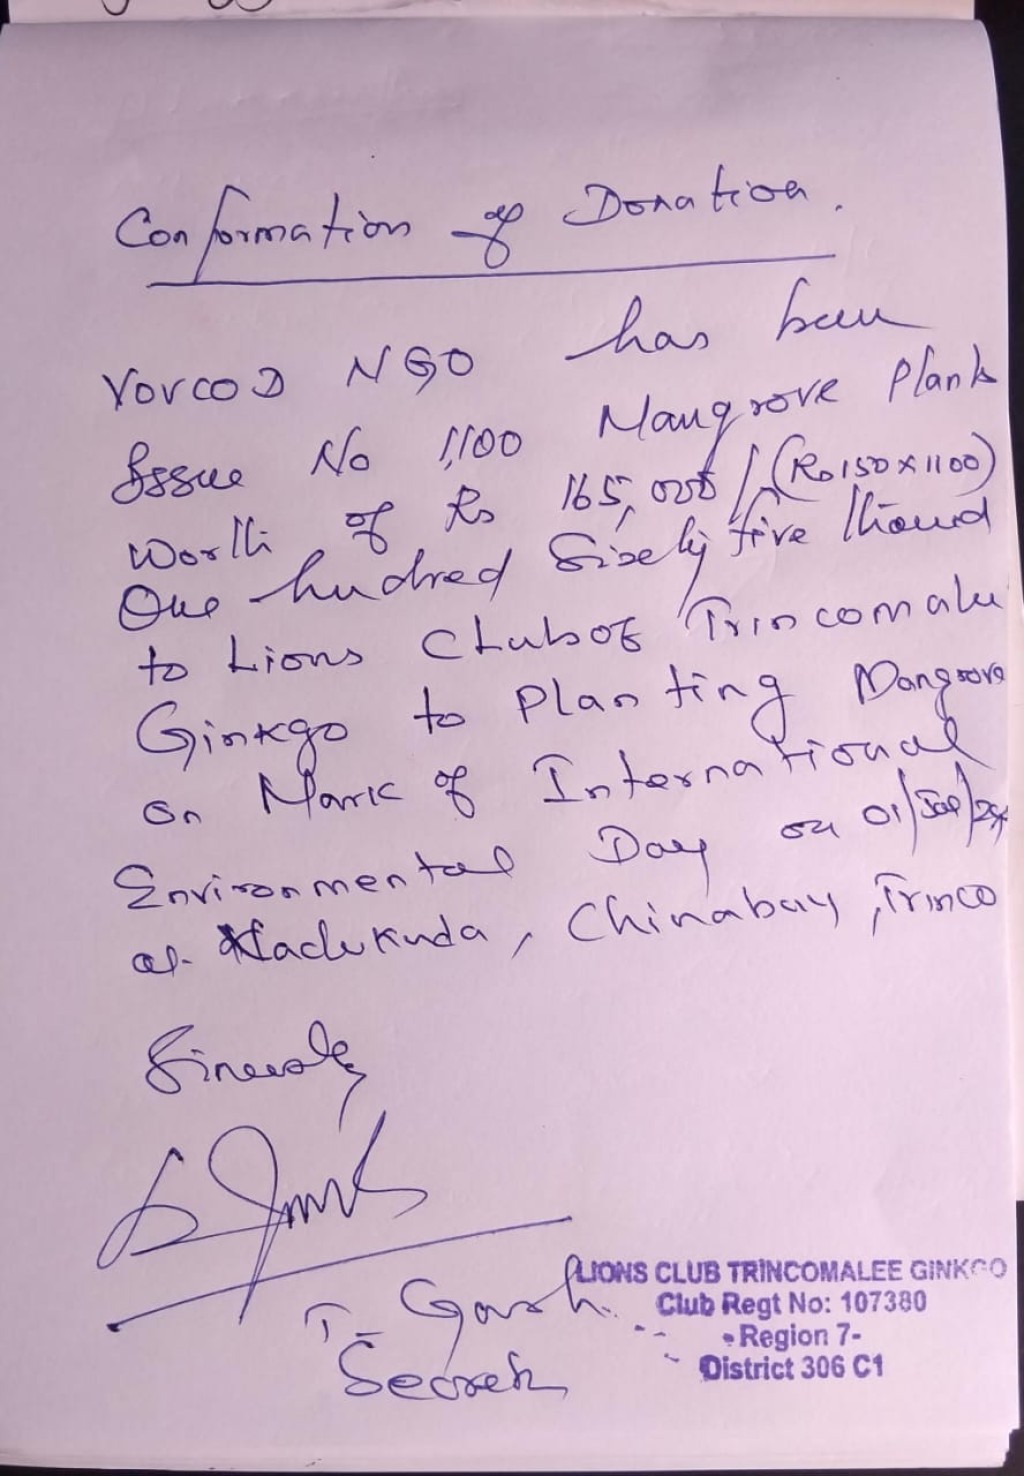 Conformation of Donation.
VOVCOD NGO has been
Issue No 1,100 Mangrove Plants
Worth of Rs 165,000/ (Rs 150 x 1100)
One hundred Sixty five thousand
to Lions Club of Trincomalee
Ginkgo to Planting Mangrove
on Mark of International
Environmental Day on 01/ /24
at Chinabay, Trinco
Sincerely
T- 
LIONS CLUB TRINCOMALEE GINKGO
Club Regt No: 107380
- Region 7-
District 306 C1